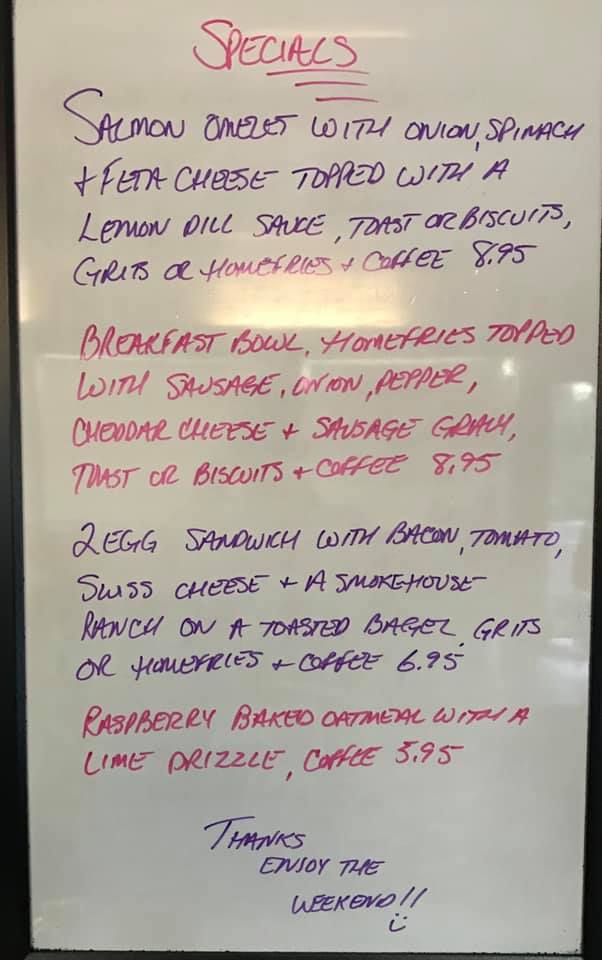 SPECIALS
SALMON OMELET WITH ONION, SPINACH
+ FETA CHEESE TOPPED WITH A
LEMON DILL SAUCE, TOAST OR BISCUITS,
GRITS OR HOMEFRIES + COFFEE 8.95
BREAKFAST BOWL, HOMEFRIES TOPPED
WITH SAUSAGE, ONION, PEPPER,
CHEDDAR CHEESE + SAUSAGE GRAVY,
TOAST OR BISCUITS + COFFEE 8.95
2 EGG SANDWICH WITH BACON, TOMATO,
SWISS CHEESE + A SMOKEHOUSE
RANCH ON A TOASTED BAGEL, GRITS
OR HOMEFRIES + COFFEE 6.95
RASPBERRY BAKED OATMEAL WITH A
LIME DRIZZLE, COFFEE 5.95
THANKS
ENJOY THE
WEEKEND!!